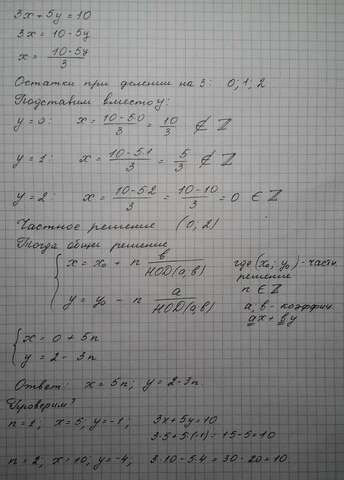 3x+5y=10
3x = 10-5y
x = (10-5y)/3
Остатки при делении на 3: 0; 1; 2
Подставим вместо y:
y=0: x = (10-5·0)/3 = 10/3 ∉ Z
y=1: x = (10-5·1)/3 = 5/3 ∉ Z
y=2: x = (10-5·2)/3 = (10-10)/3 = 0 ∈ Z
Частное решение (0, 2)
Тогда общее решение
{ x = x₀ + n b/НОД(a,b) где (x₀; y₀) - частн. решение
n ∈ Z
y = y₀ - n a/НОД(a,b) a, b - коэффиц.
ax + by
{ x = 0 + 5n
y = 2 - 3n
Ответ: x = 5n; y = 2-3n
Проверим?
n=1, x=5; y=-1; 3x+5y=10
3·5+5·(-1)=15-5=10
n=2, x=10, y=-4, 3·10-5·4=30-20=10